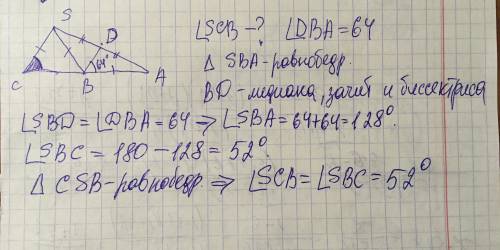 ∠SCB-? ∠DBA=64
△ SBA-равнобедр.
BD-медиана, значит и биссектриса
∠SBD=∠DBA=64 ⇒ ∠SBA=64+64=128°.
∠SBC=180-128=52°.
△ CSB-равнобедр ⇒ ∠SCB=∠SBC=52°
S
D
64°
C
B
A